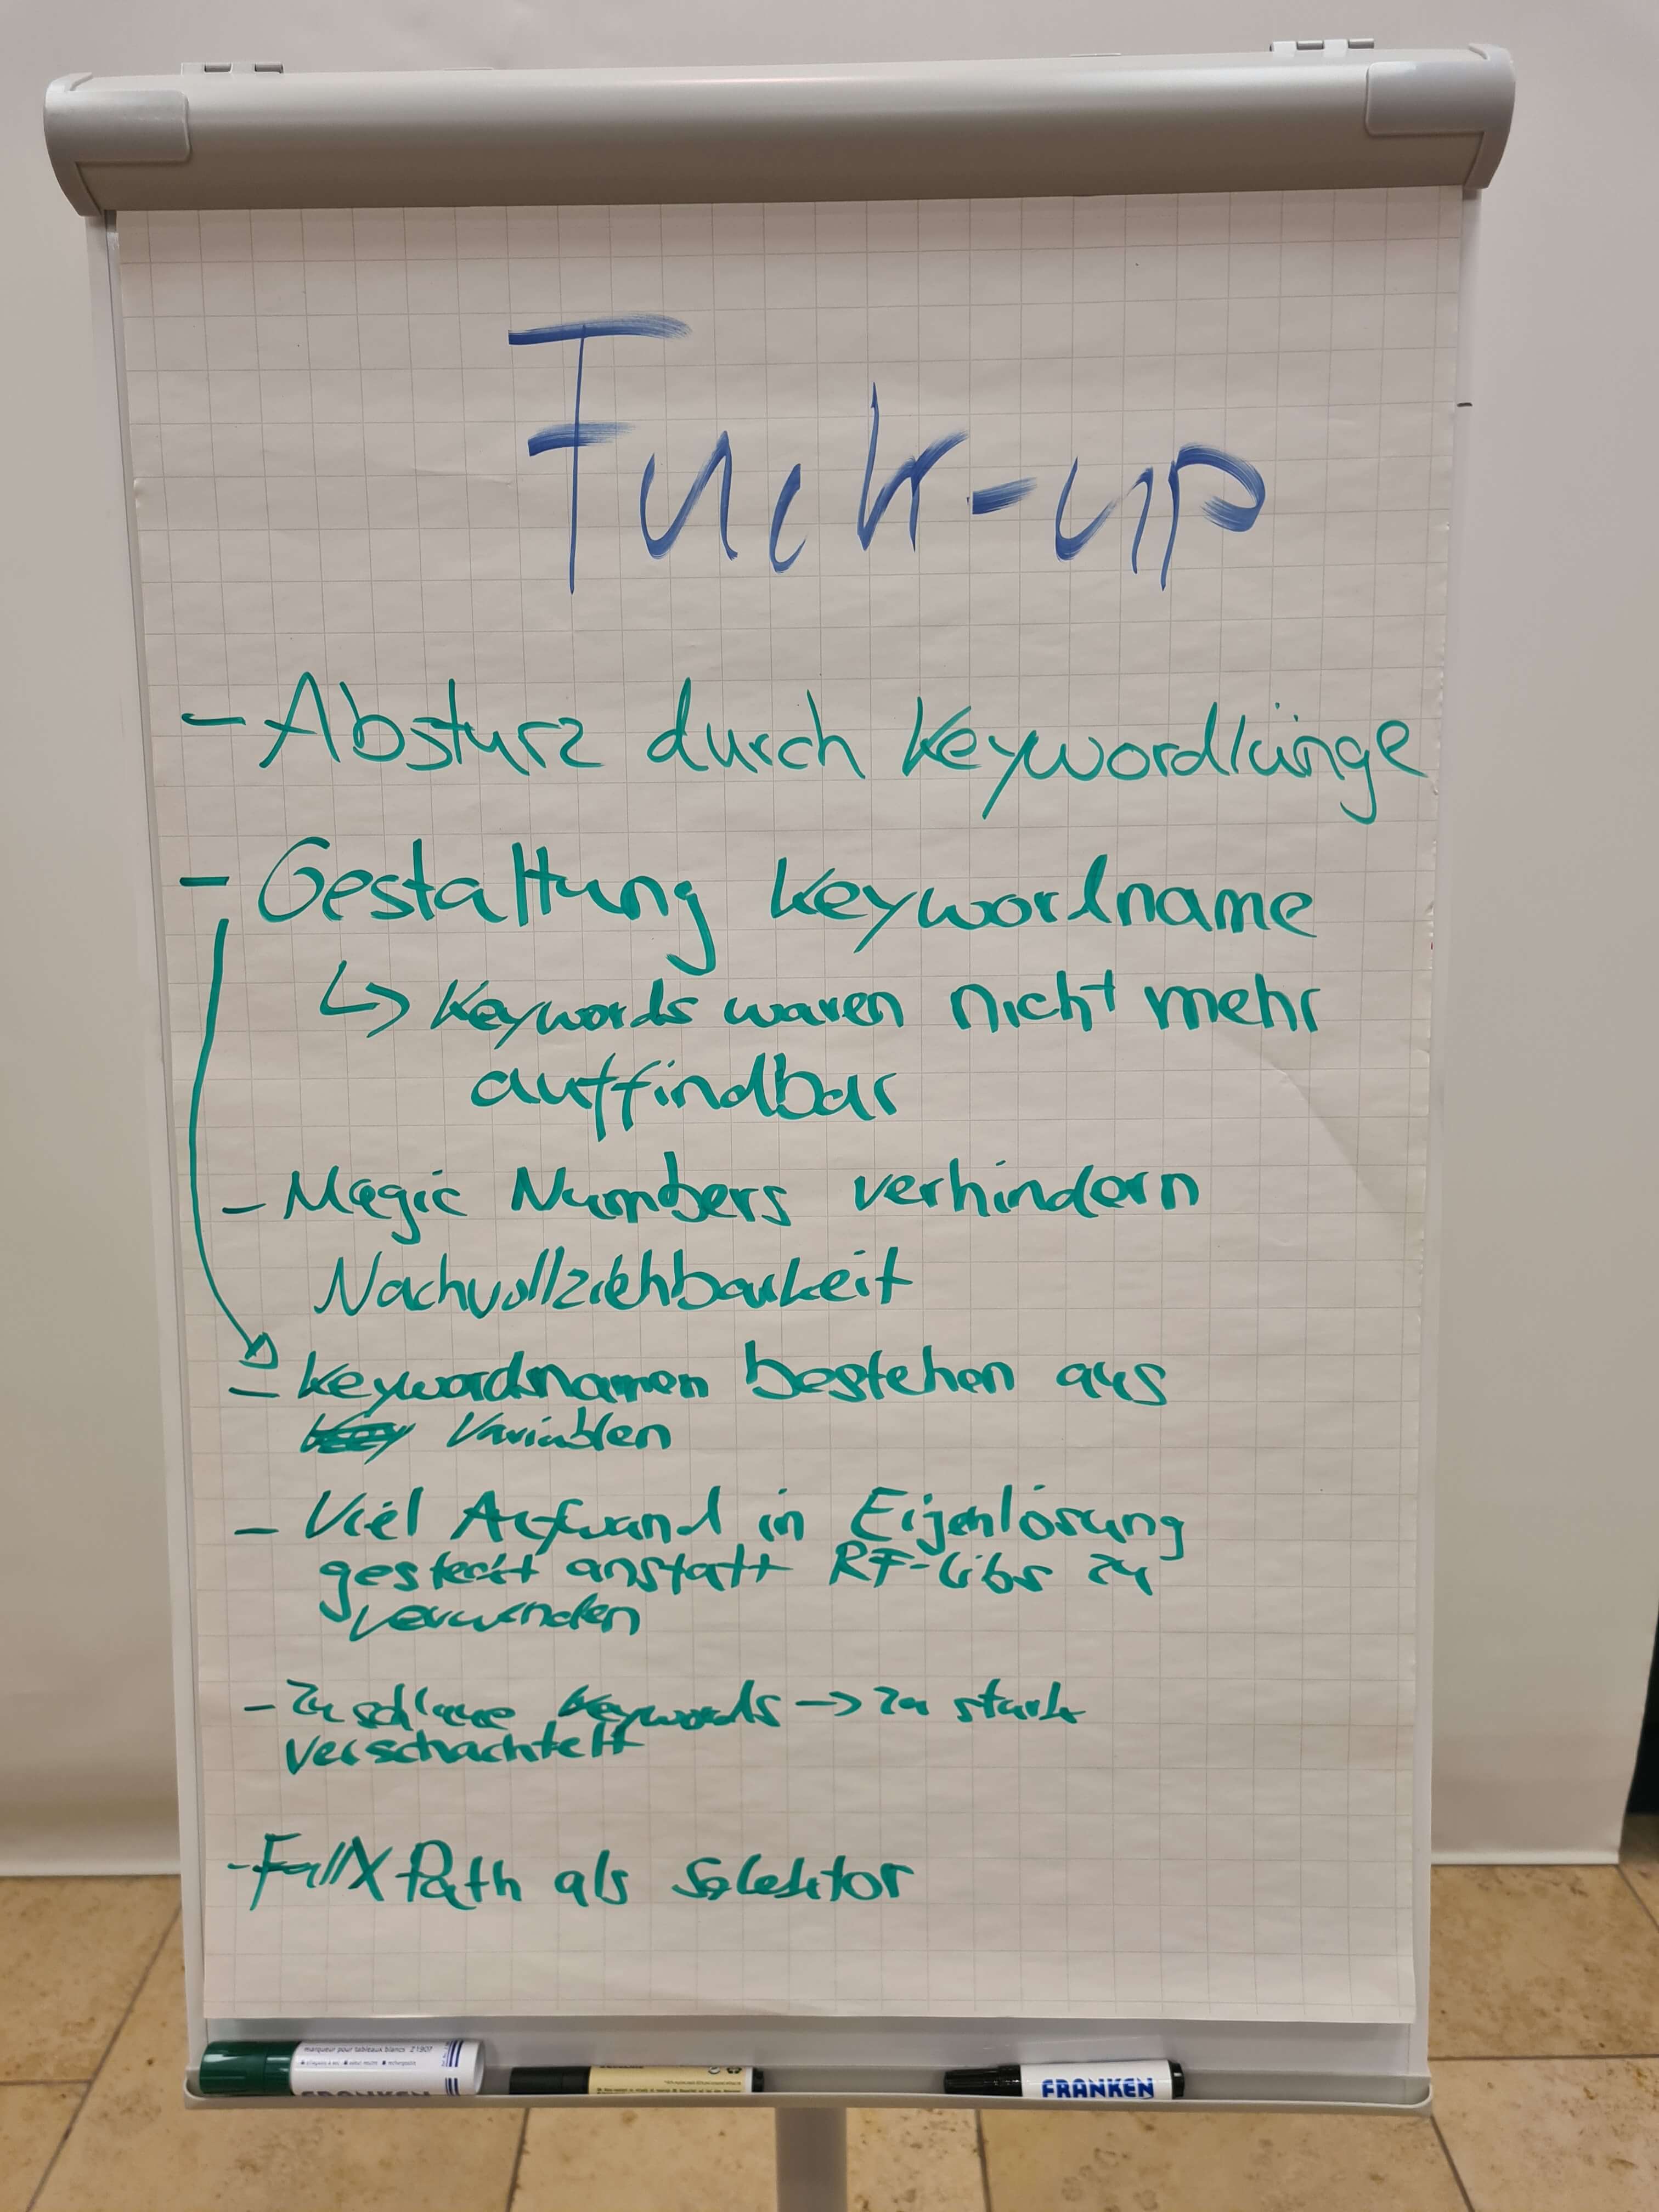 Fuck-up
- Absturz durch Keywordlänge
- Gestaltung Keywordname
↳ Keywords waren nicht mehr
auffindbar
- Magic Numbers verhindern
Nachvollziehbarkeit
- Keywordsnamen bestehen aus
Variablen
- Viel Aufwand in Eigenlösung
gesteckt anstatt RF-Libs zu
verwenden
- Zu schlaue Keywords → zu stark
verschachtelt
- Full XPath als Selektor
marqueur pour tableaux blancs Z1907
FRANKEN
FRANKEN